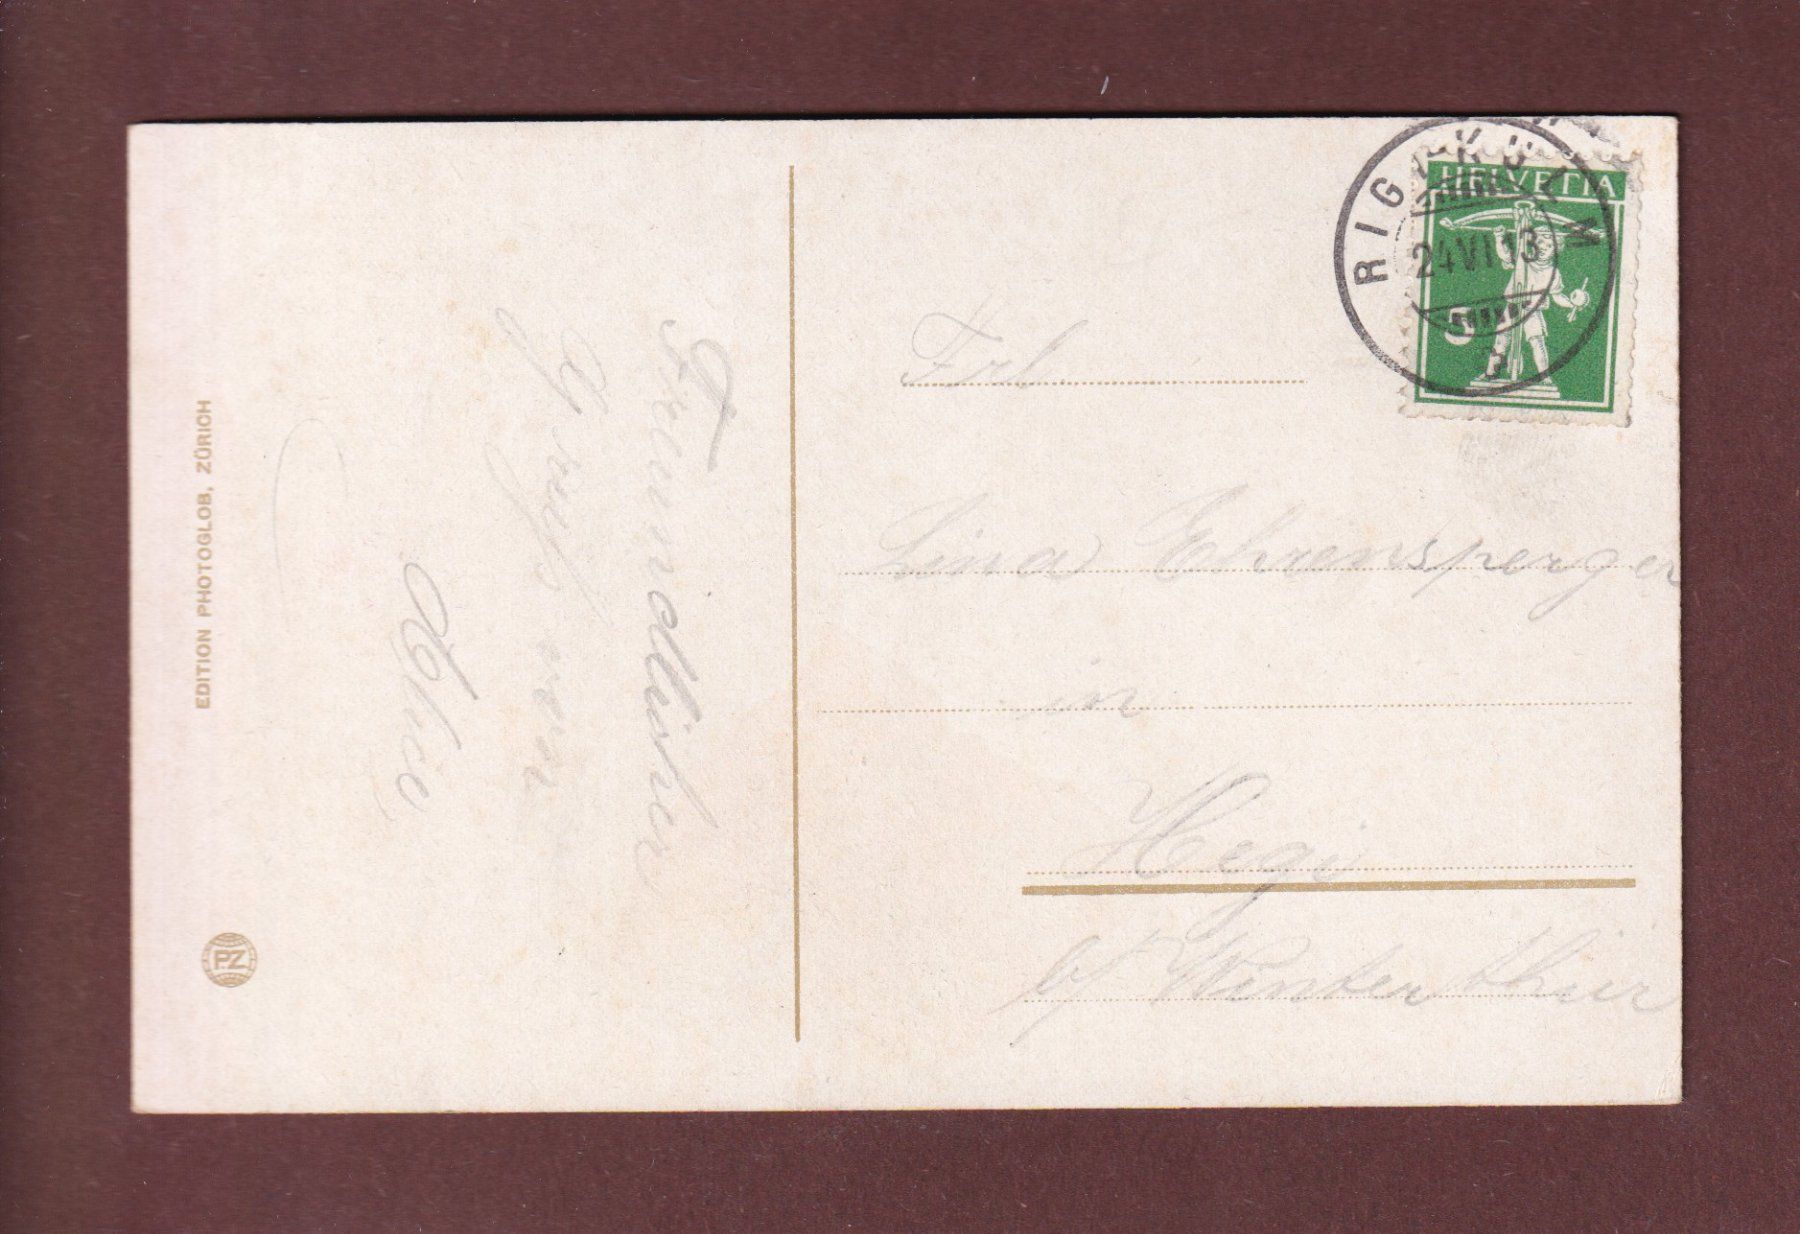 EDITION PHOTOGLOB, ZÜRICH
PZ
Freundlichen
Gruss von
RIGI-KULM
24 VI 13
HELVETIA
5
Frl.
Lina Ehrensperger
in
Hegi
b/ Winterthur